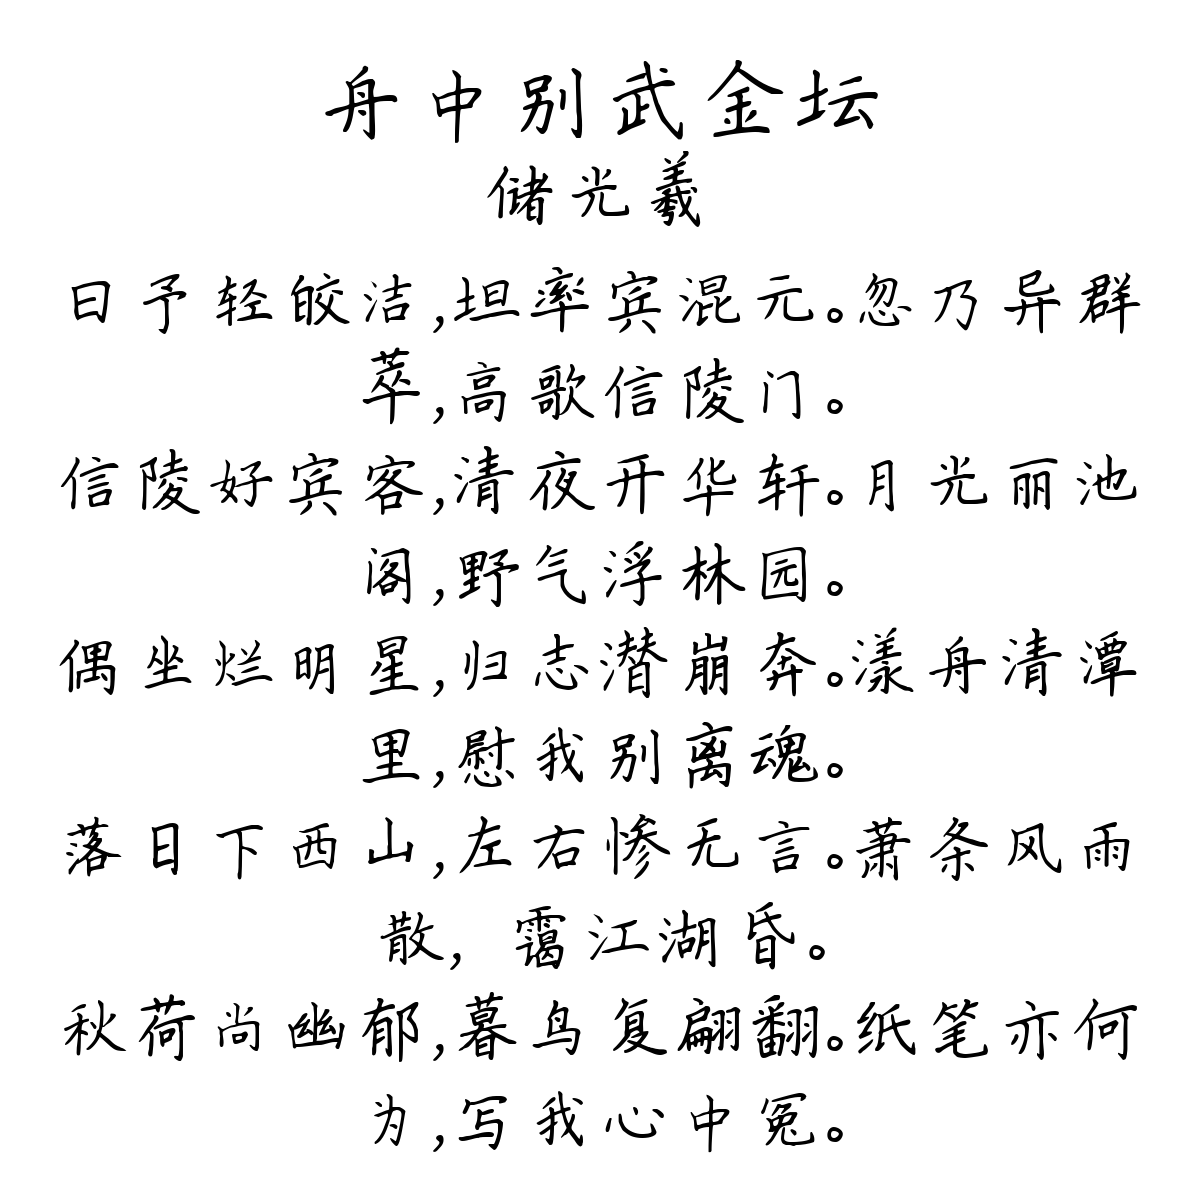 舟中别武金坛
储光羲
曰予轻皎洁,坦率宾混元。忽乃异群
萃,高歌信陵门。
信陵好宾客,清夜开华轩。月光丽池
阁,野气浮林园。
偶坐烂明星,归志潜崩奔。漾舟清潭
里,慰我别离魂。
落日下西山,左右惨无言。萧条风雨
散, 霭江湖昏。
秋荷尚幽郁,暮鸟复翩翻。纸笔亦何
为,写我心中冤。